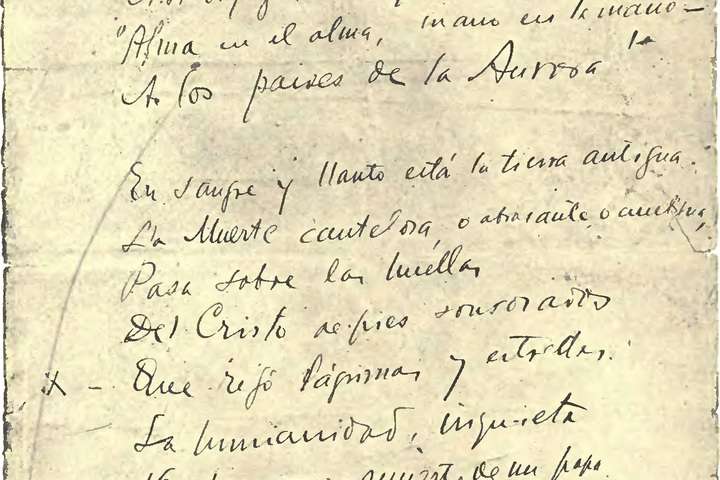 "Alma en el alma, mano en la mano—
A los paises de la Aurora"
En sangre y llanto está la tierra antigua.
La Muerte cautelosa, o abrasante, o ambigua,
Pasa sobre las huellas
Del Cristo de pies sonrosados
- Que regó lágrimas y estrellas.
La humanidad, inquieta
muerte de un papa